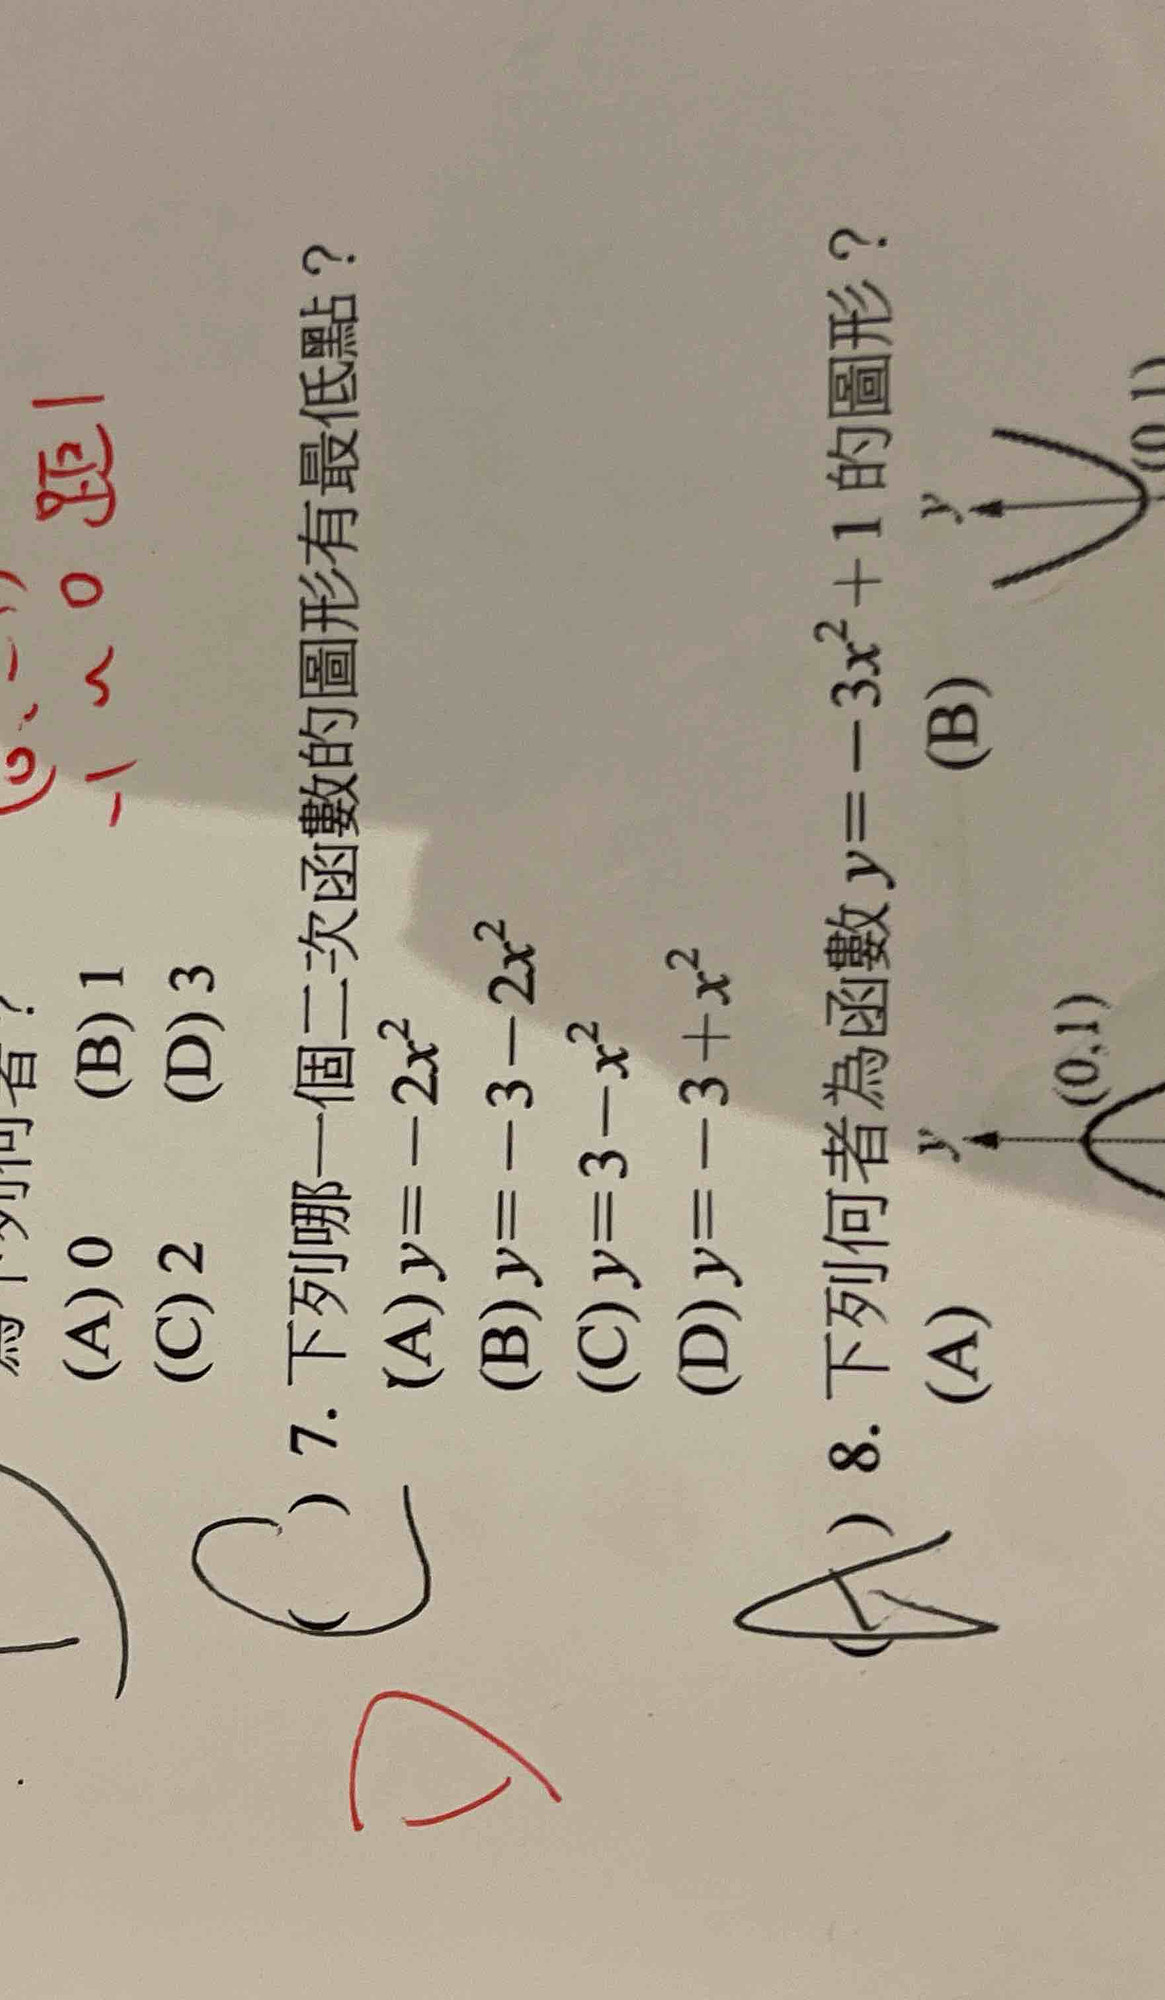 (0,-1)
-1 ~ 0 距 1
(A) 0 (B) 1
(C) 2 (D) 3
C ( ) 7. 下列哪一個二次函數的圖形有最低點？
(A) y=-2x²
(B) y=-3-2x²
(C) y=3-x²
(D) y=-3+x²
A ( ) 8. 下列何者為函數 y=-3x²+1 的圖形？
(A) (B)
y y
(0,1) (0,1)